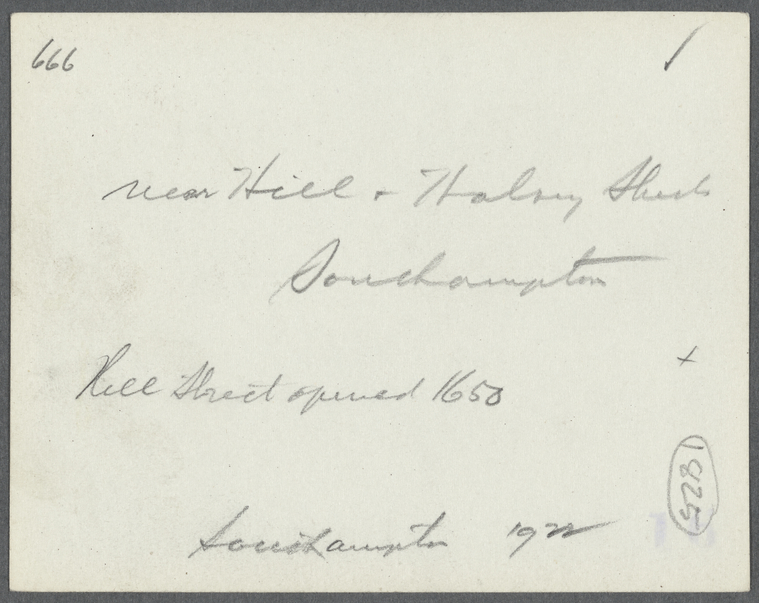 666
near Hill + Halsey Streets
Southampton
Hill Street opened 1650
+
5281
Southampton 1922